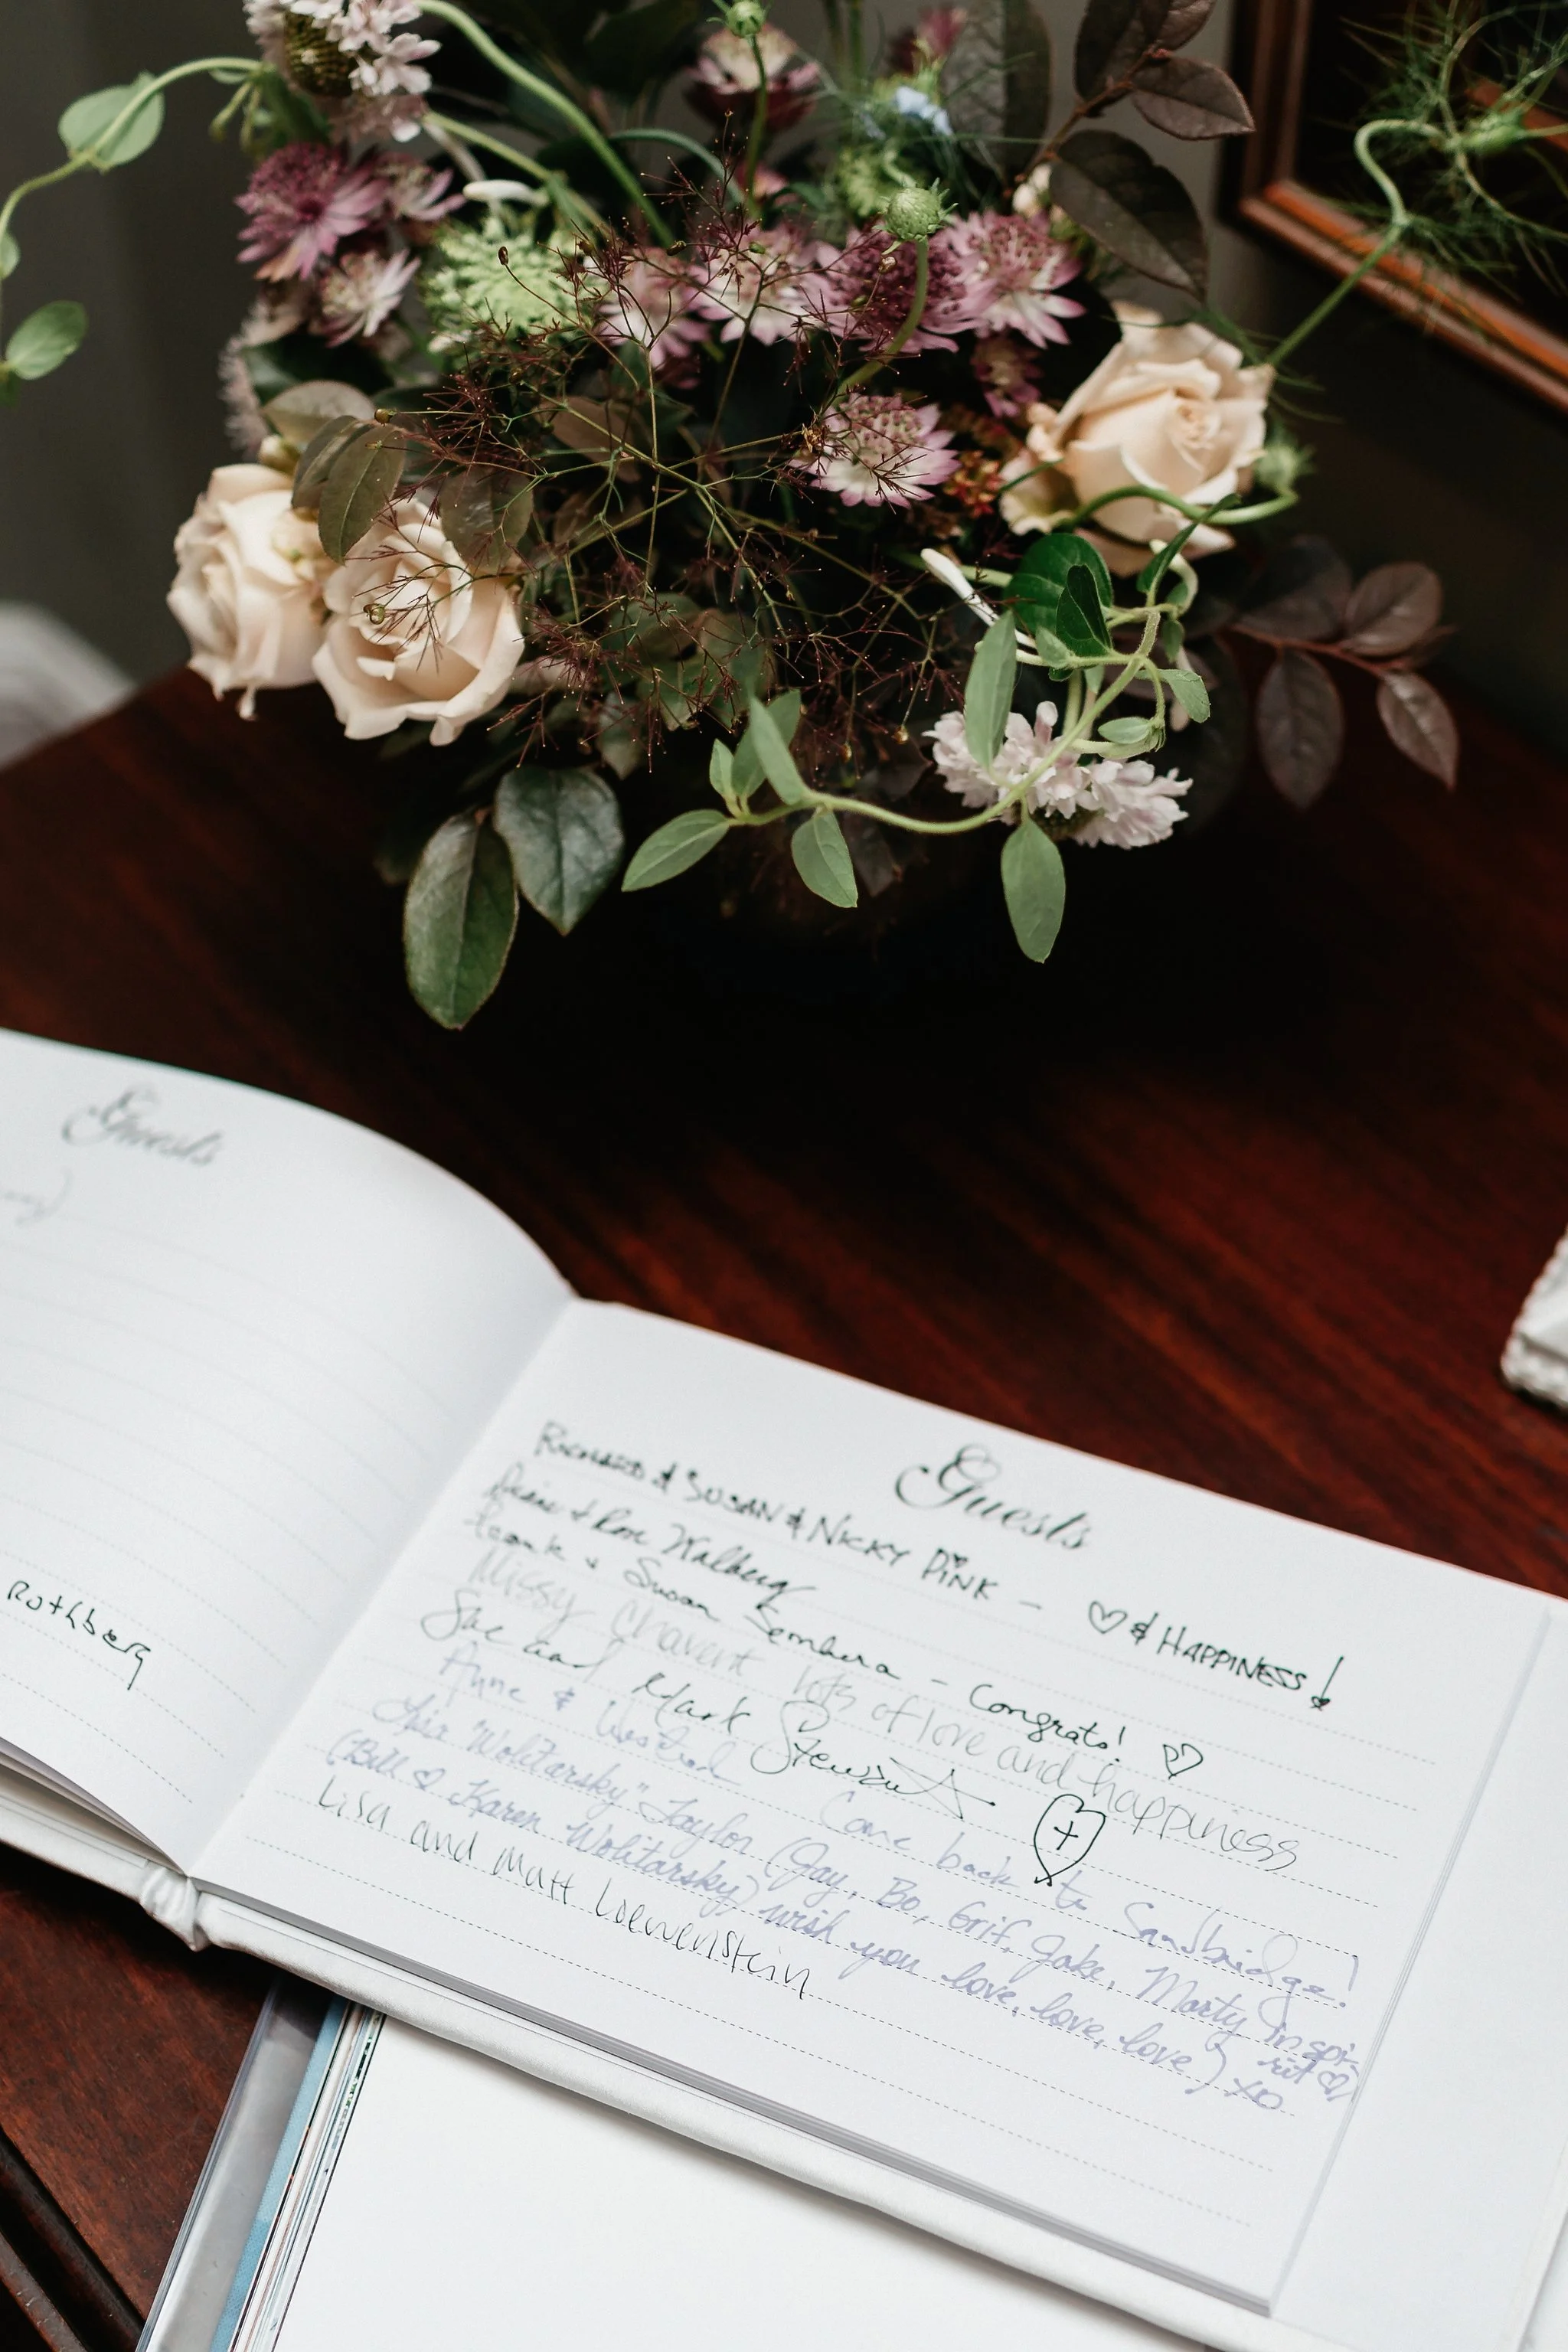 Guests
Rothberg
Guests
RICHARD & SUSAN & NICKY PINK – ♡ & HAPPINESS!
& Ron Walberg
Frank & Susan – Congrats! ♡
Missy Chavent lots of love and happiness
Sue and Mark Stewart
Anne & Come back to Sandbridge!
"Wolitarsky" Taylor (Jay, Bo, Grif, Jake, Marty in spi-
rit ♡
(Bill & Karen Wolitarsky) wish you love, love, love) xo
Lisa and Matt Loewenstein